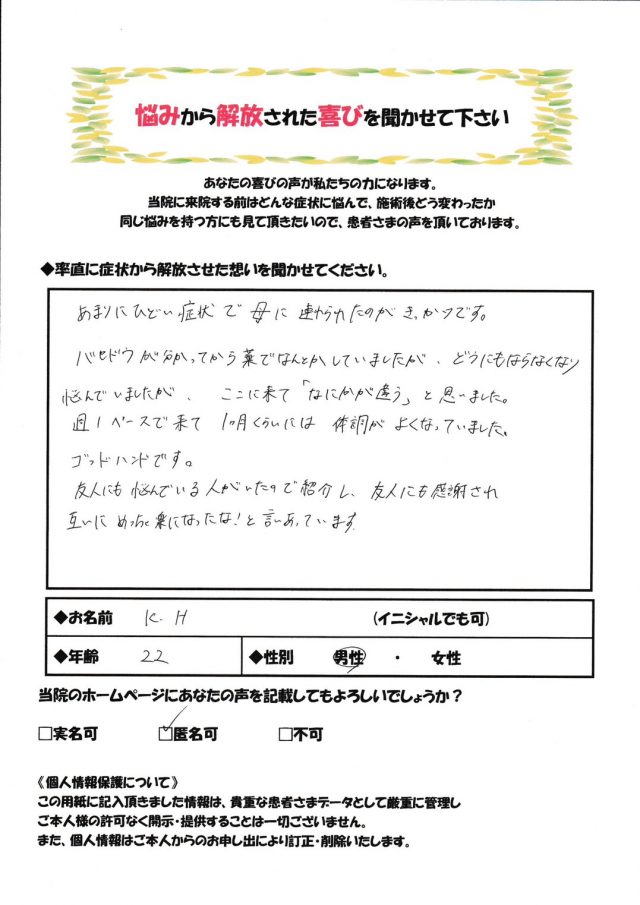 悩みから解放された喜びを聞かせて下さい
あなたの喜びの声が私たちの力になります。
当院に来院する前はどんな症状に悩んで、施術後どう変わったか
同じ悩みを持つ方にも見て頂きたいので、患者さまの声を頂いております。
◆率直に症状から解放させた想いを聞かせてください。
あまりにひどい症状で母に連れられたのがきっかけです。
バセドウが分かってから薬でなんとかしていましたが、どうにもならなくなり
悩んでいましたが、ここに来て「なにかが違う」と思いました。
週1ペースで来て1ヶ月くらいには体調がよくなっていました。
ゴッドハンドです。
友人にも悩んでいる人がいたので紹介し、友人にも感謝され
互いにめっちゃ楽になったな!と言いあっています。
◆お名前 K.H (イニシャルでも可)
◆年齢 22 ◆性別 男性 ・ 女性
当院のホームページにあなたの声を記載してもよろしいでしょうか?
□実名可 □匿名可 □不可
《個人情報保護について》
この用紙に記入頂きました情報は、貴重な患者さまデータとして厳重に管理し
ご本人様の許可なく開示・提供することは一切ございません。
また、個人情報はご本人からのお申し出により訂正・削除いたします。